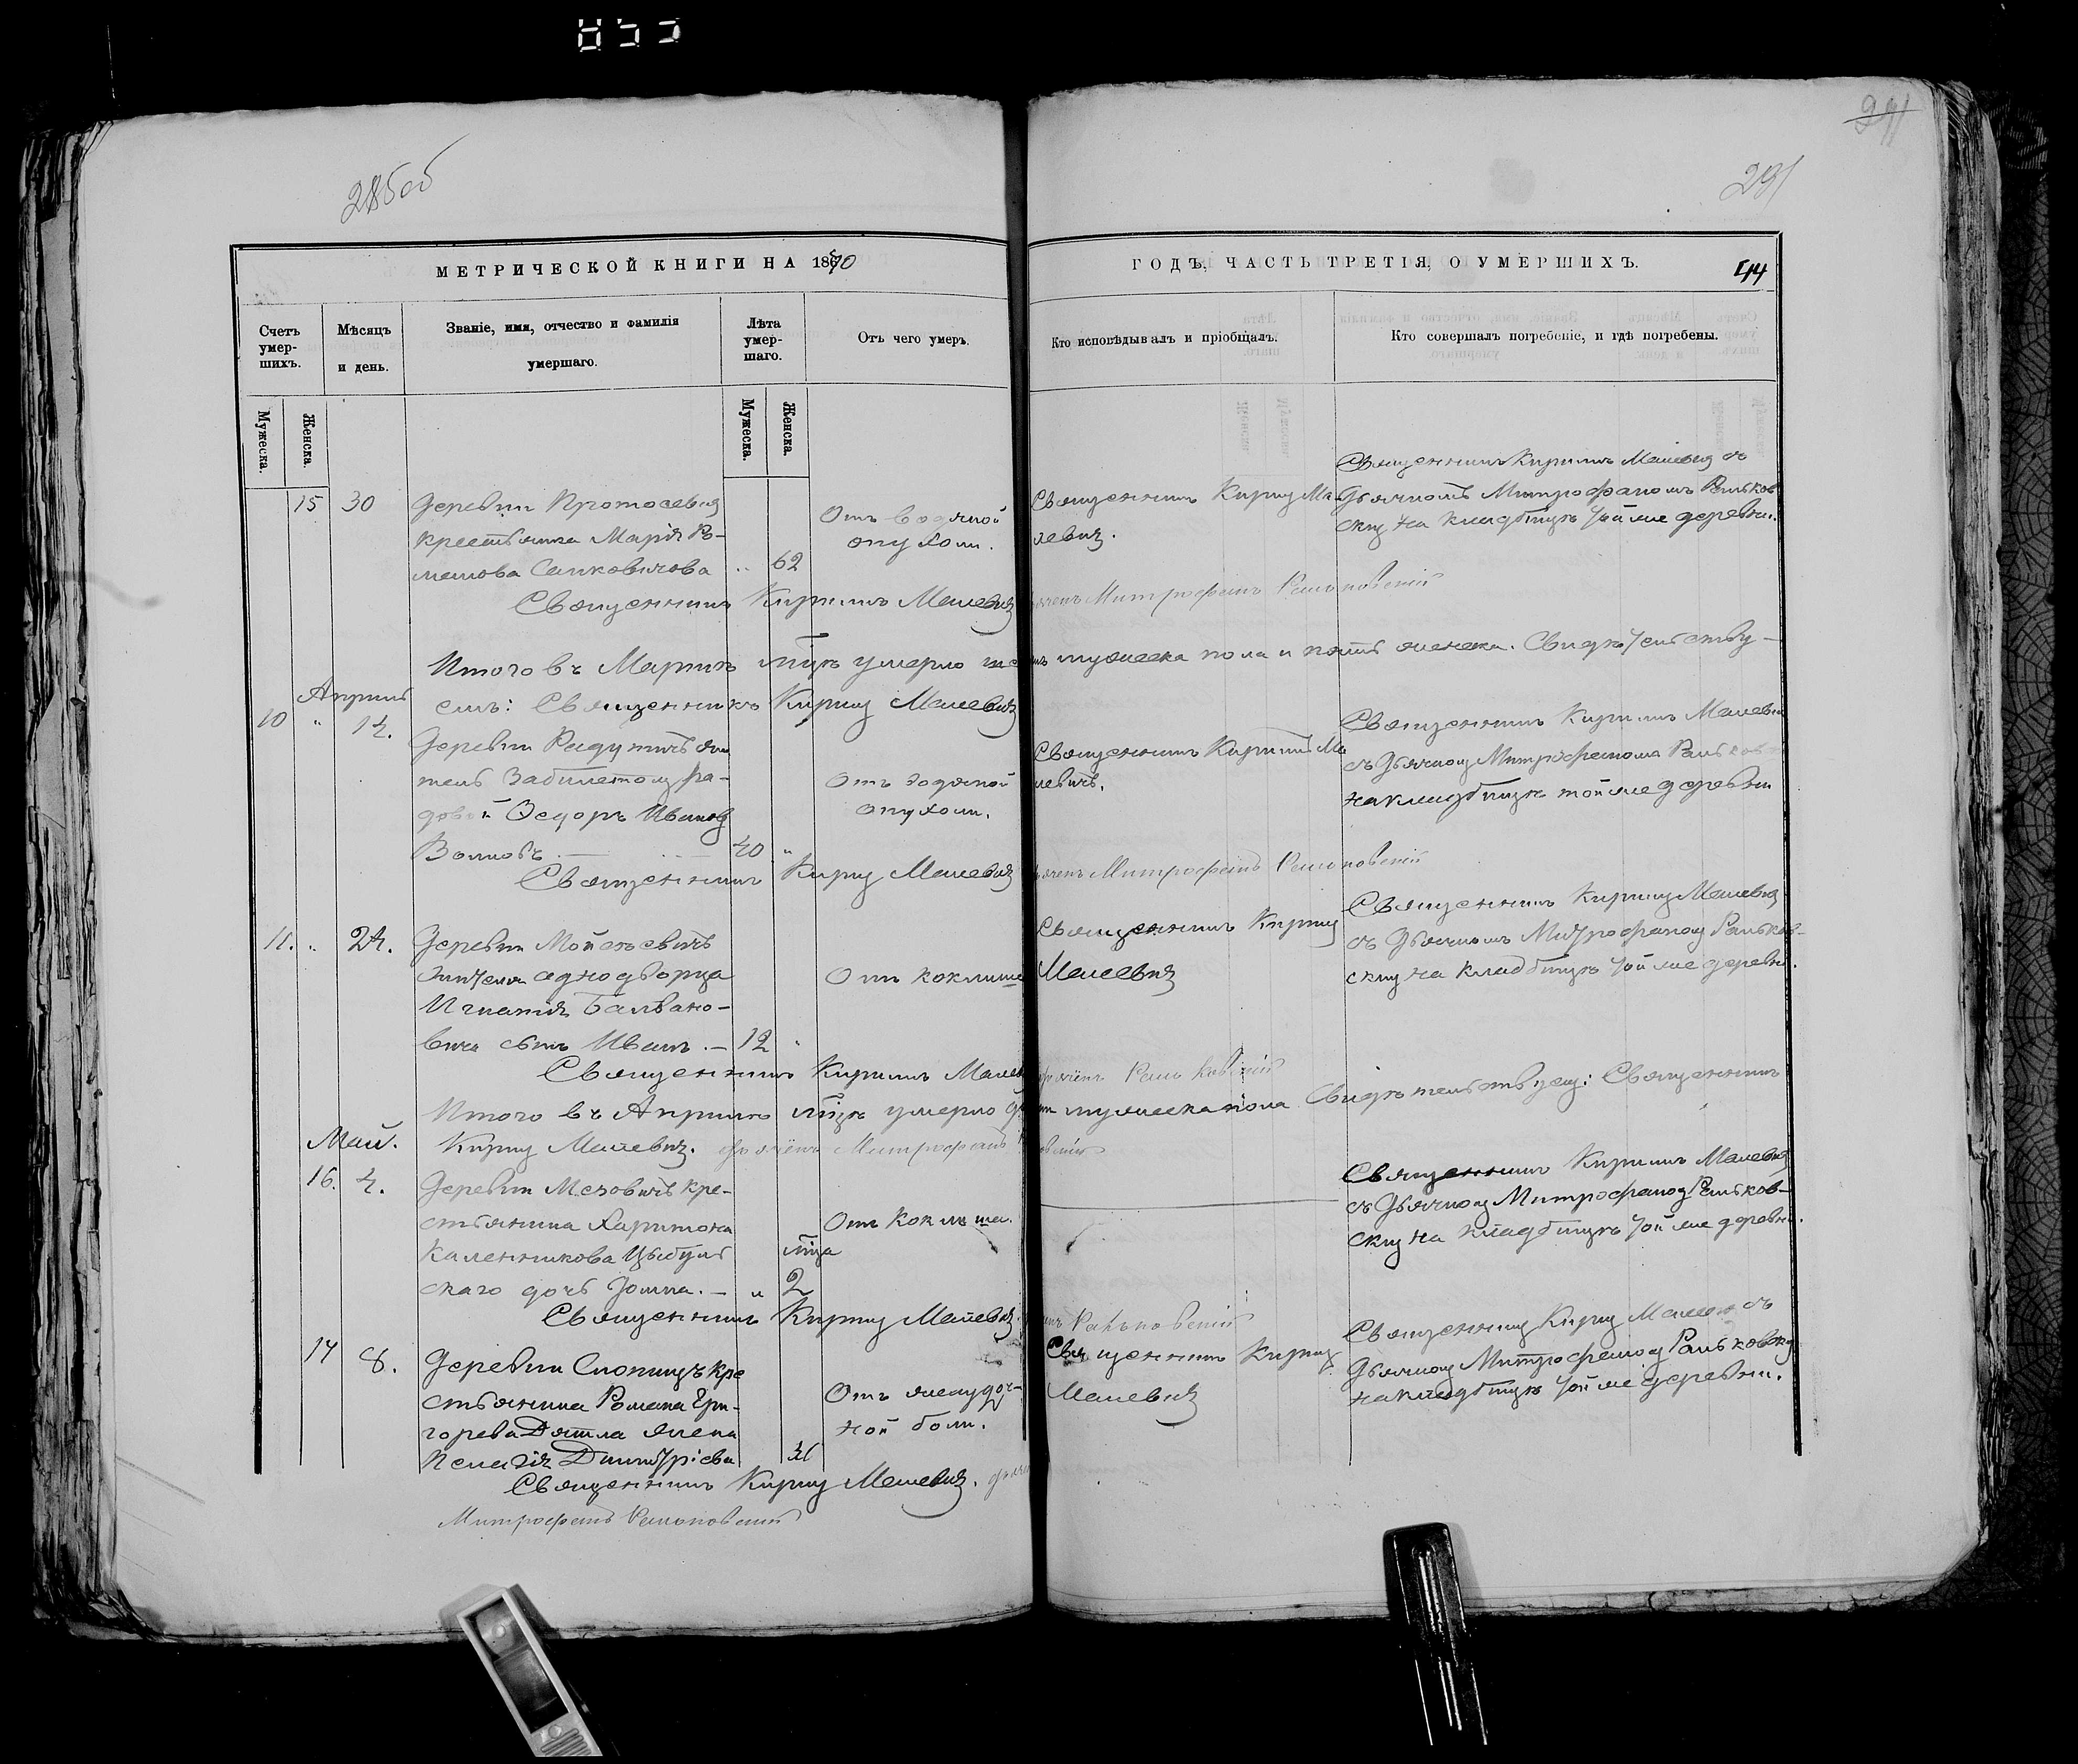 285об
291
291
МЕТРИЧЕСКОЙ КНИГИ НА 1870
ГОДЪ, ЧАСТЬ ТРЕТІЯ, О УМЕРШИХЪ.
44
Счетъ умер-шихъ.
Мѣсяцъ и день.
Званіе, имя, отчество и фамилія умершаго.
Лѣта умер-шаго.
Отъ чего умеръ.
Кто исповѣдывалъ и пріобщалъ.
Кто совершалъ погребеніе, и гдѣ погребены.
Мужеска.
Женска.
Мужеска.
Женска.
15 30
Деревни Протосевич
крестьянка Марія Ро-
манова Санковичова .. 62
Отъ водяной
опухоли.
Священникъ Кирилъ Ма-
левич.
Священникъ Кирилъ Малевич съ
Дьячкомъ Митрофаномъ Раньков
ским на кладбищѣ той же деревни.
Священникъ Кирилъ Малевич
Дьячекъ Митрофанъ Раньковскій
Итого въ Мартѣ мцѣ умерло
мужеска пола и пять женска. Свидѣтельству-
емъ: Священникъ Кирил Малевич
Апрель
10 " 14.
Деревни Радутичь жи
тель Забилетный ря-
довой Ѳедоръ Иванов
Волковъ 40 "
Отъ водяной
опухоли.
Священникъ Кирилъ Ма
левичъ.
Священникъ Кирилъ Малевич
съ Дьячком Митрофаномъ Раньков
на кладбищѣ той же деревни
Священникъ Кирил Малевич
Дьячекъ Митрофанъ Раньковскій
11. " 24.
Деревни Мойсеевичь
жителя однодворца
Игнатія Балвано-
вича сынъ Иванъ. — 12 "
Отъ коклюша
Священникъ Кирил
Малевич
Священникъ Кирил Малевич
съ Дьячкомъ Митрофаном Раньков-
ским на кладбищѣ той же деревни.
Священникъ Кирилъ Малевич
Раньковскій
Итого въ Апрелѣ мцѣ умерло два мужеска пола Свидѣтельствуем: Священникъ
Кирил Малевич. Дьячекъ Митрофанъ Раньковскій
Май.
16. 4.
Деревни Мезовичь кре-
стьянина Харитона
Каленникова Цыбуль
скаго дочь Домна. — " мца 2
Отъ коклюша.
Священникъ Кирилъ Малевич
съ Дьячком Митрофаном Раньков-
ским на кладбищѣ той же деревни.
Священникъ Кирил Малевич.
Раньковскій
17 8.
Деревни Слонищъ кре
стьянина Романа Гри-
горева Дятла жена
Пелагія Димитріева
Отъ желудоч-
ной боли.
Священникъ Кирил
Малевич
Священник Кирил Малевич съ
Дьячком Митрофаном Раньковским
на кладбищѣ той же деревни.
Священникъ Кирил Малевич. Дьячекъ
Митрофанъ Раньковскій